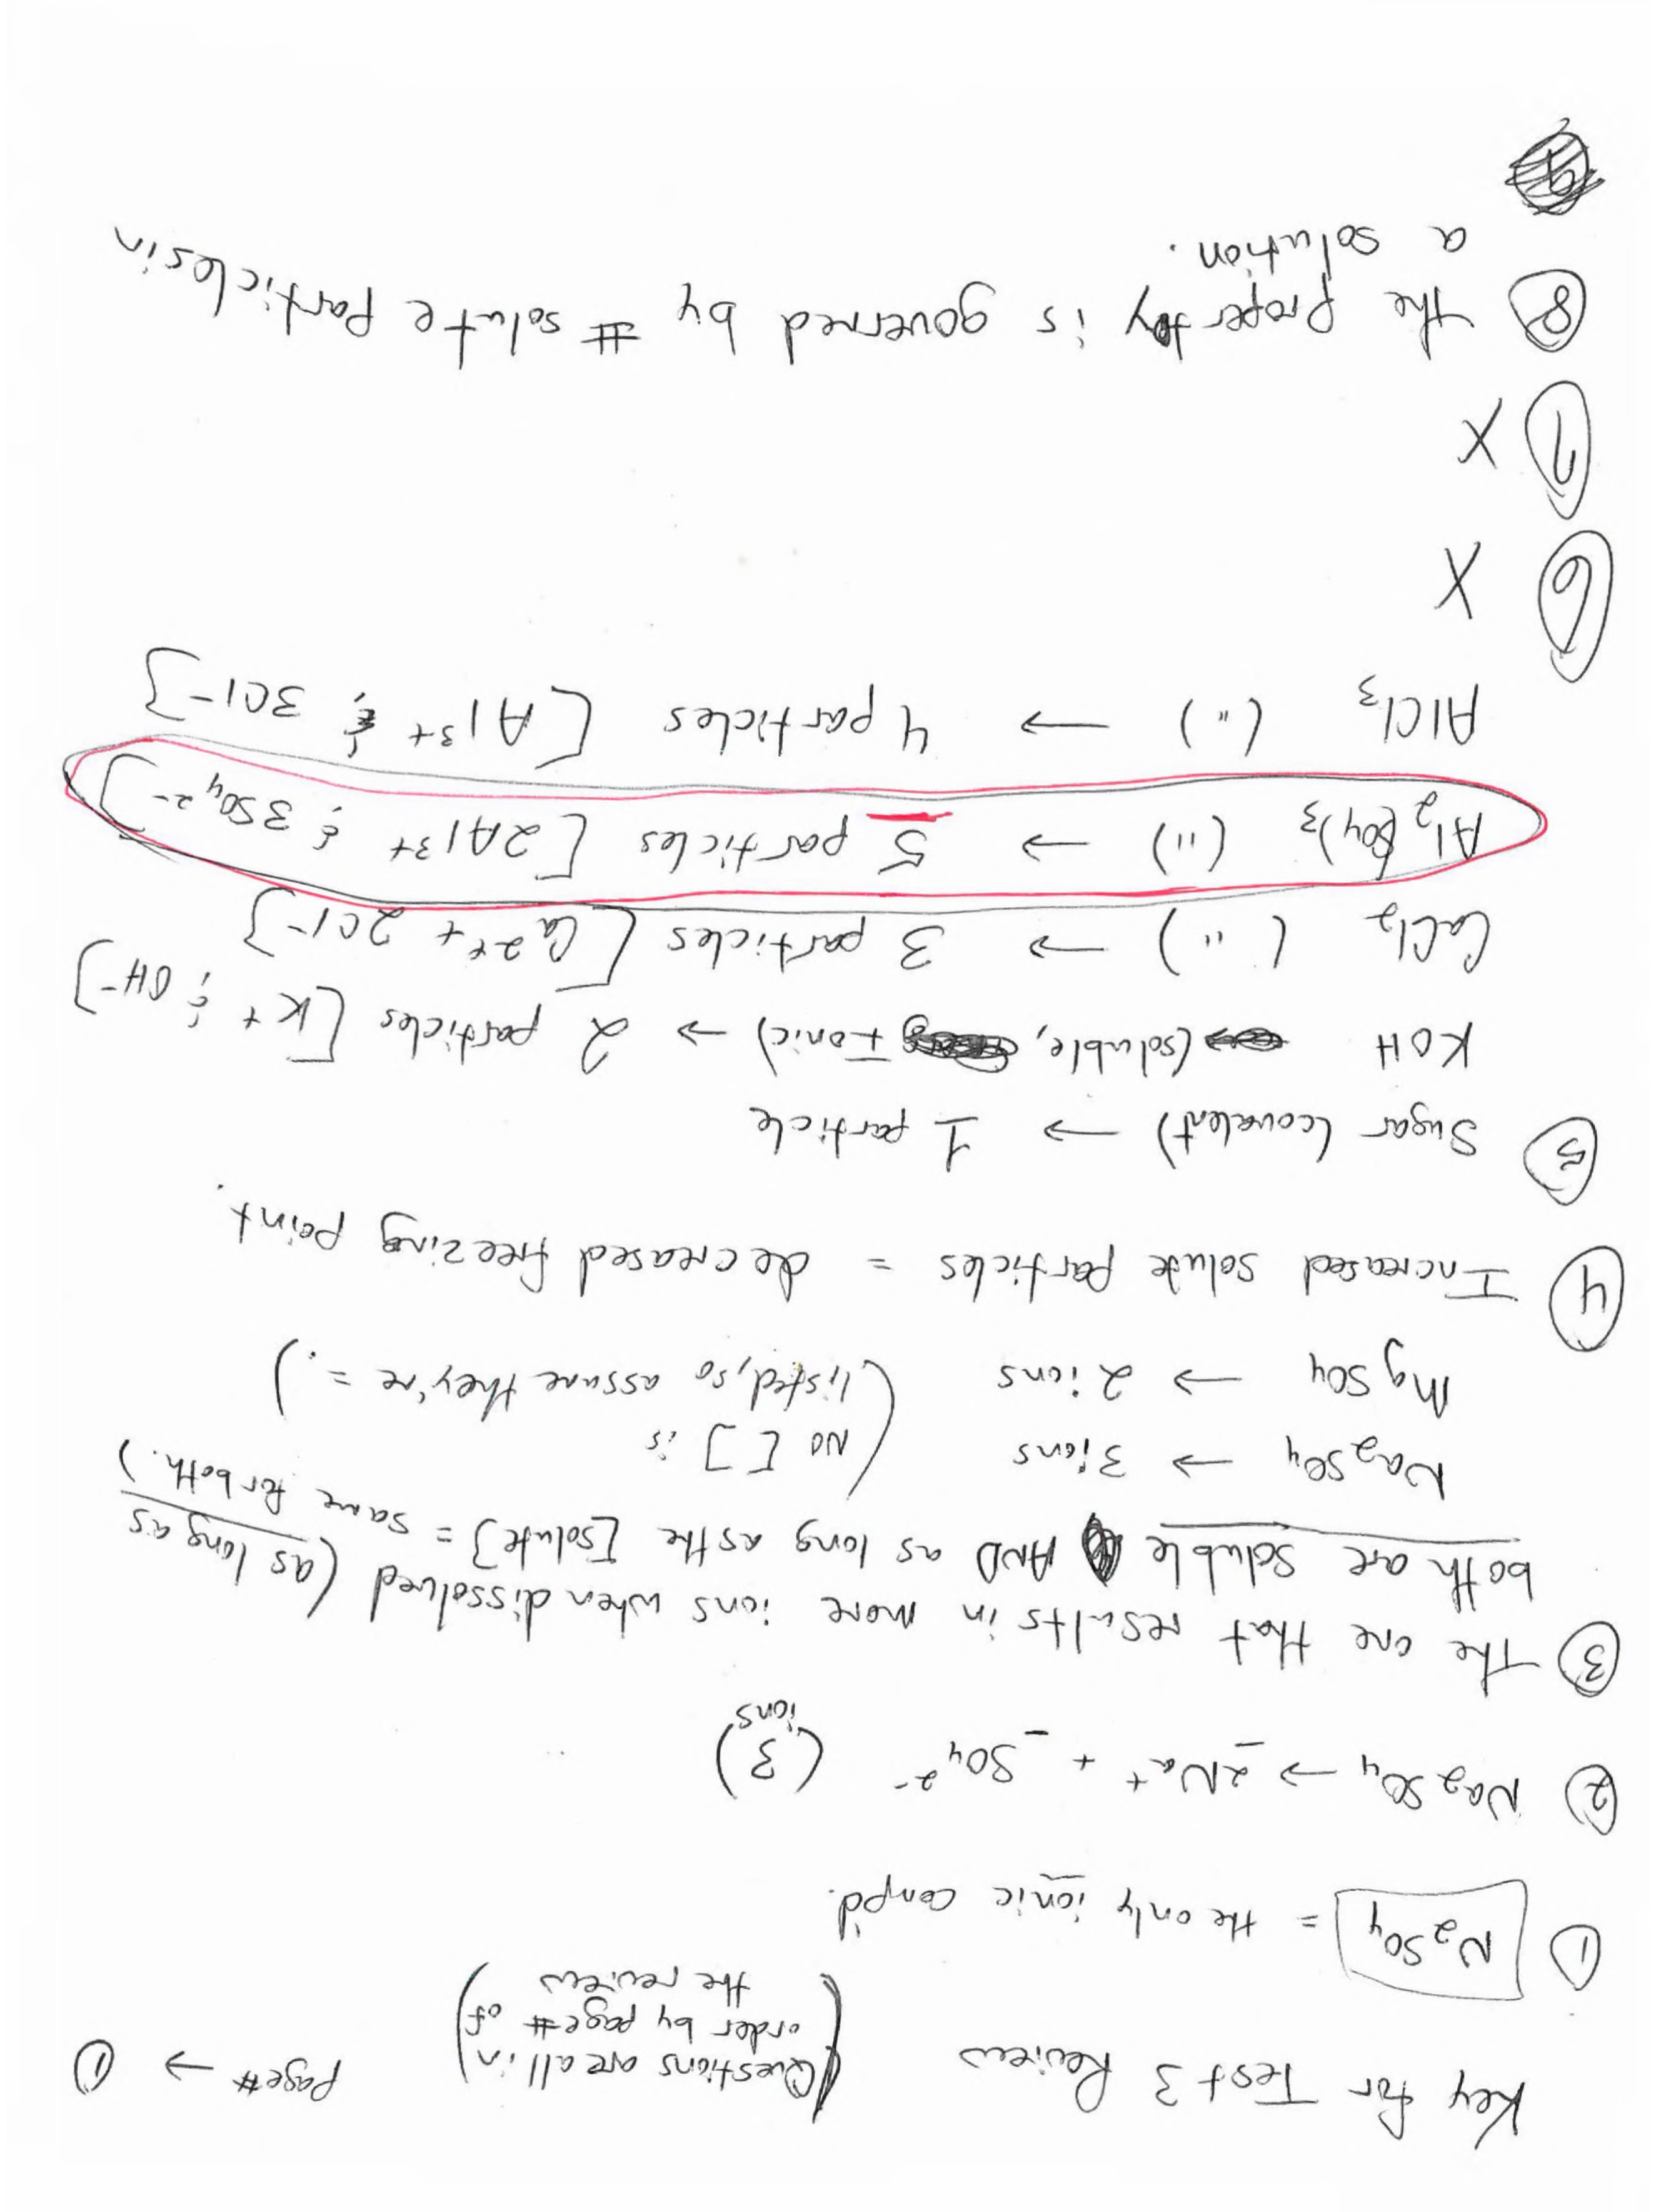 Key for Test 3 Review (Questions are all in order by page # of the review) page # → ①
① Na2SO4 = the only ionic comp'd.
② Na2SO4 → 2Na+ + SO4 2- (3 ions)
③ The one that results in more ions when dissolved (as long as
both are soluble AND as long as the [solute] = same for both.)
Na2SO4 → 3 ions (No [ ] is
MgSO4 → 2 ions listed, so assume they're =.)
④ Increased solute particles = decreased freezing point.
⑤ Sugar (covalent) → 1 particle
KOH (soluble, Ionic) → 2 particles [K+ & OH-]
CaCl2 (") → 3 particles [Ca2+ + 2Cl-]
Al2(SO4)3 (") → 5 particles [2Al3+ & 3SO4 2-]
AlCl3 (") → 4 particles [Al3+ & 3Cl-]
⑥ X
⑦ X
⑧ The property is governed by # solute particles in
a solution.